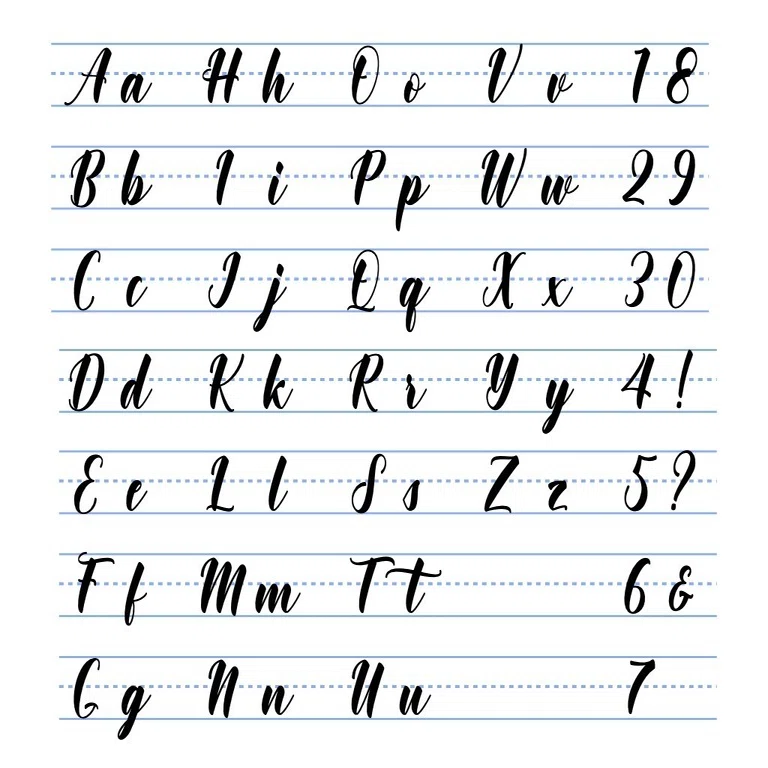 A a H h O o V v 1 8
B b I i P p W w 2 9
C c J j Q q X x 3 0
D d K k R r Y y 4 !
E e L l S s Z z 5 ?
F f M m T t 6 &
G g N n U u 7